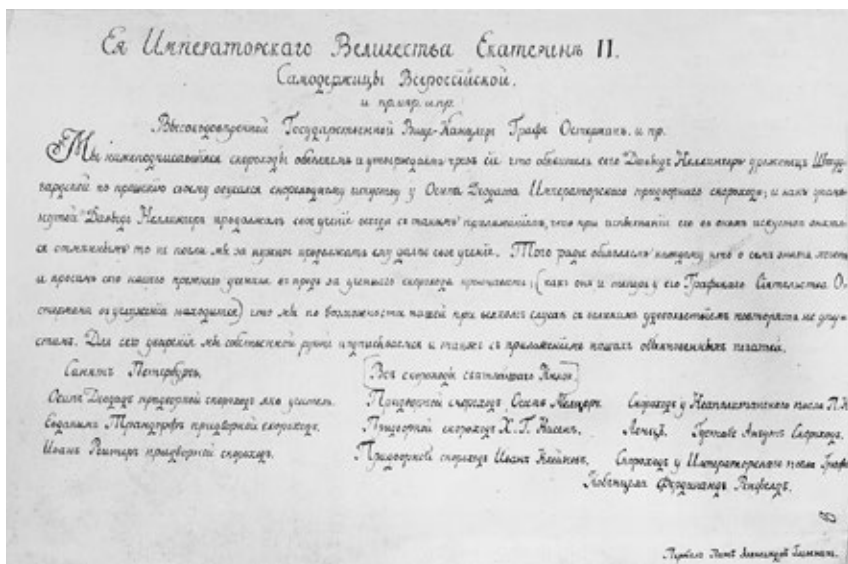 Ея Императорскаго Величества Екатеринѣ II.
Самодержицы Всероссійской.
и прочр. и пр.
Высокодовѣренной Государственной Вице-Канцлеръ Графъ Остерманъ. и пр.
Мы нижеподписавшіися скороходы объявляемъ и утверждаемъ чрезъ сіе что объявитель сего Давыдъ Неллингеръ урожденецъ Штуд-
гардской по прошенію своему обучался скороходному искуству у Осипа Деодата Императорскаго придворнаго скорохода; и какъ упомя-
нутой Давыдъ Неллингеръ продолжалъ свое ученіе всегда съ такимъ прилѣжаніемъ, что при испытаніи его въ ономъ искуствѣ оказал-
ся отмѣннымъ то не почли мы за нужное продолжать ему далѣе свое ученіе. Того ради объявляемъ каждому кто о семъ знать хочетъ
и просимъ сего нашего прежняго ученика въ предь за ученаго скорохода признавать; (какъ онъ и теперь у его Графскаго Сіятельства О-
стермана въ услуженіи находится) что мы по возможности нашей при всякомъ случаѣ съ великимъ удовольствіемъ повторять не упу-
стимъ. Для сего увѣренія мы собственной рукой подписываемся и также съ приложеніемъ нашихъ обыкновенныхъ печатей.
Санктъ Петербургъ. Всѣ скороходы свѣтлѣйшаго
Осипъ Деодатъ придворной скороходъ яко учитель. Придворной скороходъ, Осипъ Мельцеръ. Скороходъ у Неаполитанскаго посла
придворной скороходъ. Придворной скороходъ Х. Г. Нисенъ. Августъ Скороходъ.
Иванъ Рейтеръ придворной скороходъ. Придворной скороходъ Иванъ Скороходъ у Императорскаго посла Графа
Кобенцеля Фердинандъ
6
Александръ